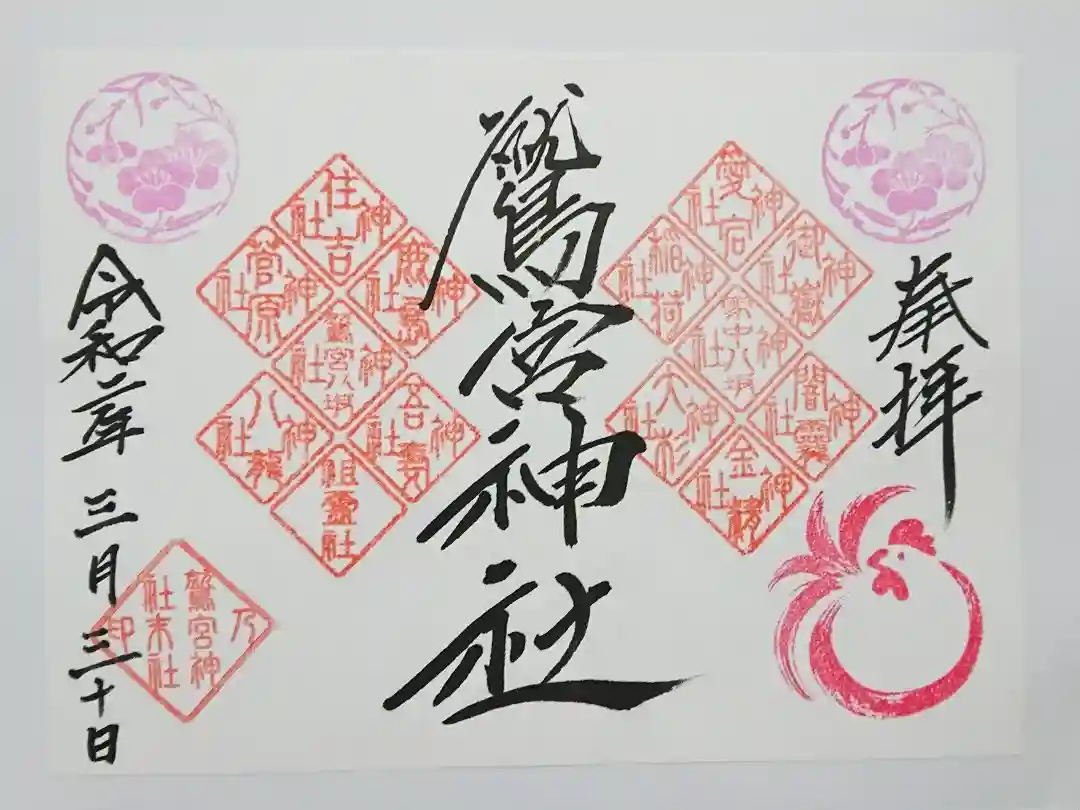 奉拝
愛宕神社
御嶽神社
稲荷神社
家中八坂神社
大杉神社
金精神社
鷲宮神社
住吉神社
鹿島神社
菅原神社
鷲宮八坂神社
吾妻神社
八龍神社
祖霊社
令和二年 三月 三十日
鷲宮神社末社乃印